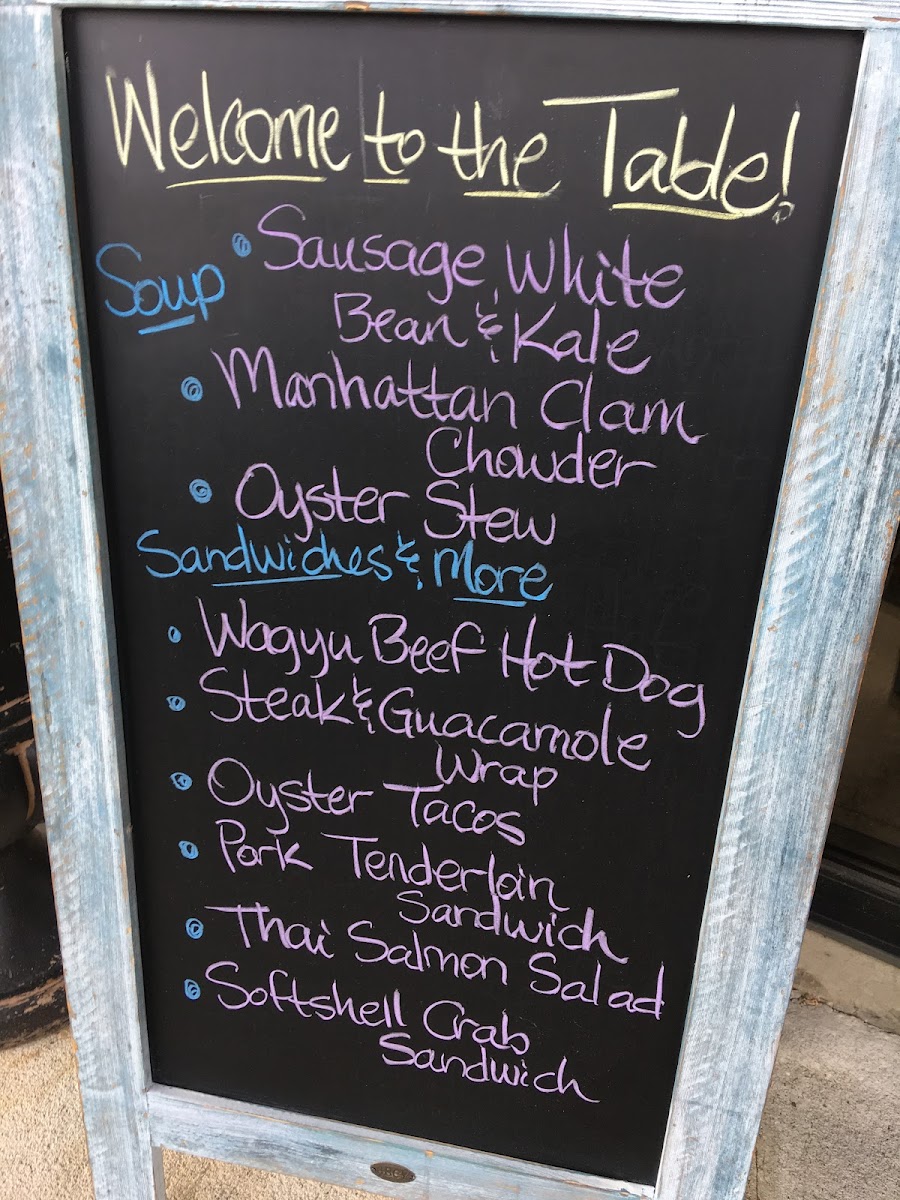 Welcome to the Table!
Soup
• Sausage White
Bean & Kale
• Manhattan Clam
Chowder
• Oyster Stew
Sandwiches & More
• Wagyu Beef Hot Dog
• Steak & Guacamole
Wrap
• Oyster Tacos
• Pork Tenderloin
Sandwich
• Thai Salmon Salad
• Softshell Crab
Sandwich